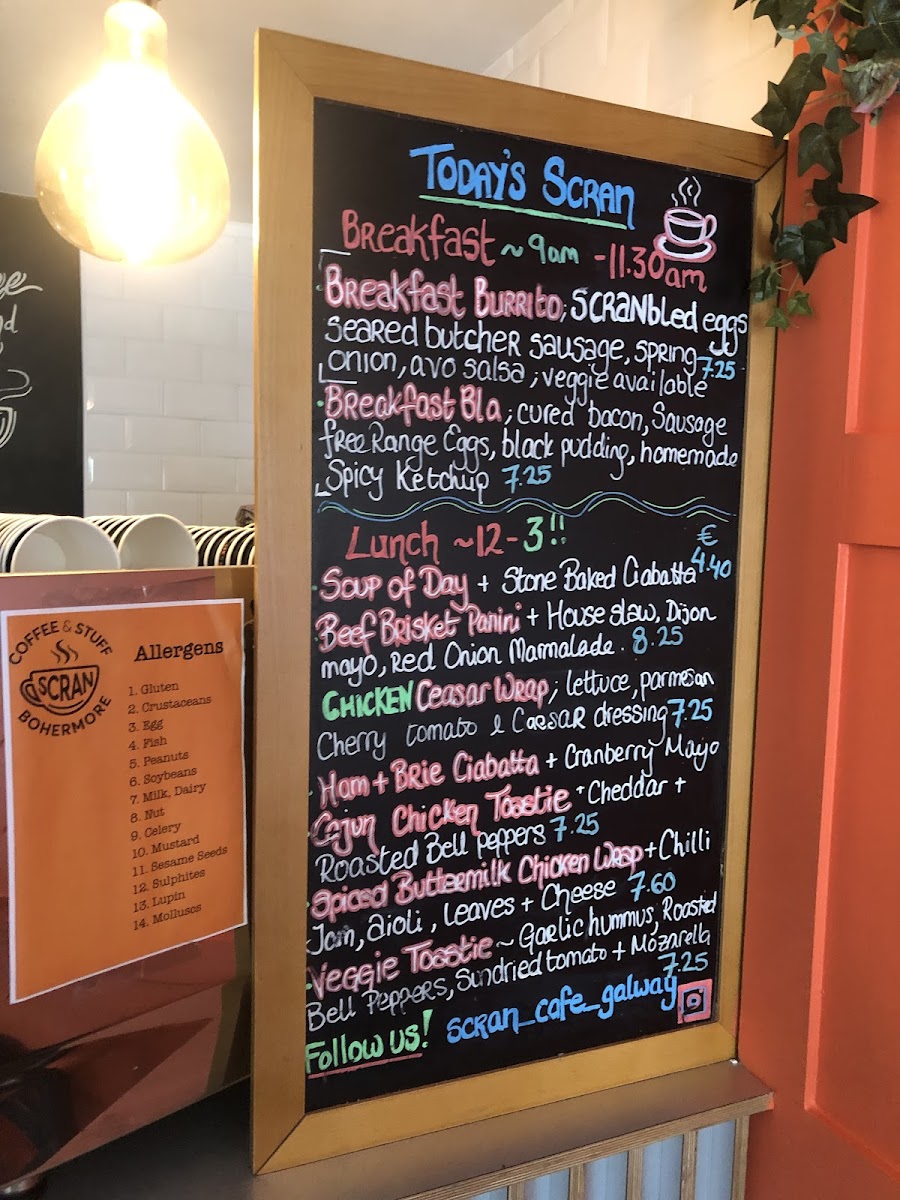 TODAY'S SCRAN
Breakfast ~ 9am - 11.30am
Breakfast Burrito; SCRANbled eggs
seared butcher sausage, spring
onion, avo salsa; veggie available 7.25
Breakfast Bla; cured bacon, Sausage
free Range Eggs, black pudding, homemade
Spicy Ketchup 7.25
Lunch ~12-3!!
€
Soup of Day + Stone Baked Ciabatta 4.40
Beef Brisket Panini + House slaw, Dijon
mayo, Red Onion Marmalade. 8.25
CHICKEN Ceasar Wrap; lettuce, parmesan
Cherry tomato & Caesar dressing 7.25
Ham + Brie Ciabatta + Cranberry Mayo
Cajun Chicken Toastie + Cheddar +
Roasted Bell peppers 7.25
Spiced Buttermilk Chicken Wrap + Chilli
Jam, aioli, Leaves + Cheese 7.60
Veggie Toastie ~ Garlic hummus, Roasted
Bell Peppers, Sundried tomato + Mozarella
7.25
Follow us! scran_cafe_galway
COFFEE & STUFF
SCRAN
BOHERMORE
Allergens
1. Gluten
2. Crustaceans
3. Egg
4. Fish
5. Peanuts
6. Soybeans
7. Milk, Dairy
8. Nut
9. Celery
10. Mustard
11. Sesame Seeds
12. Sulphites
13. Lupin
14. Molluscs